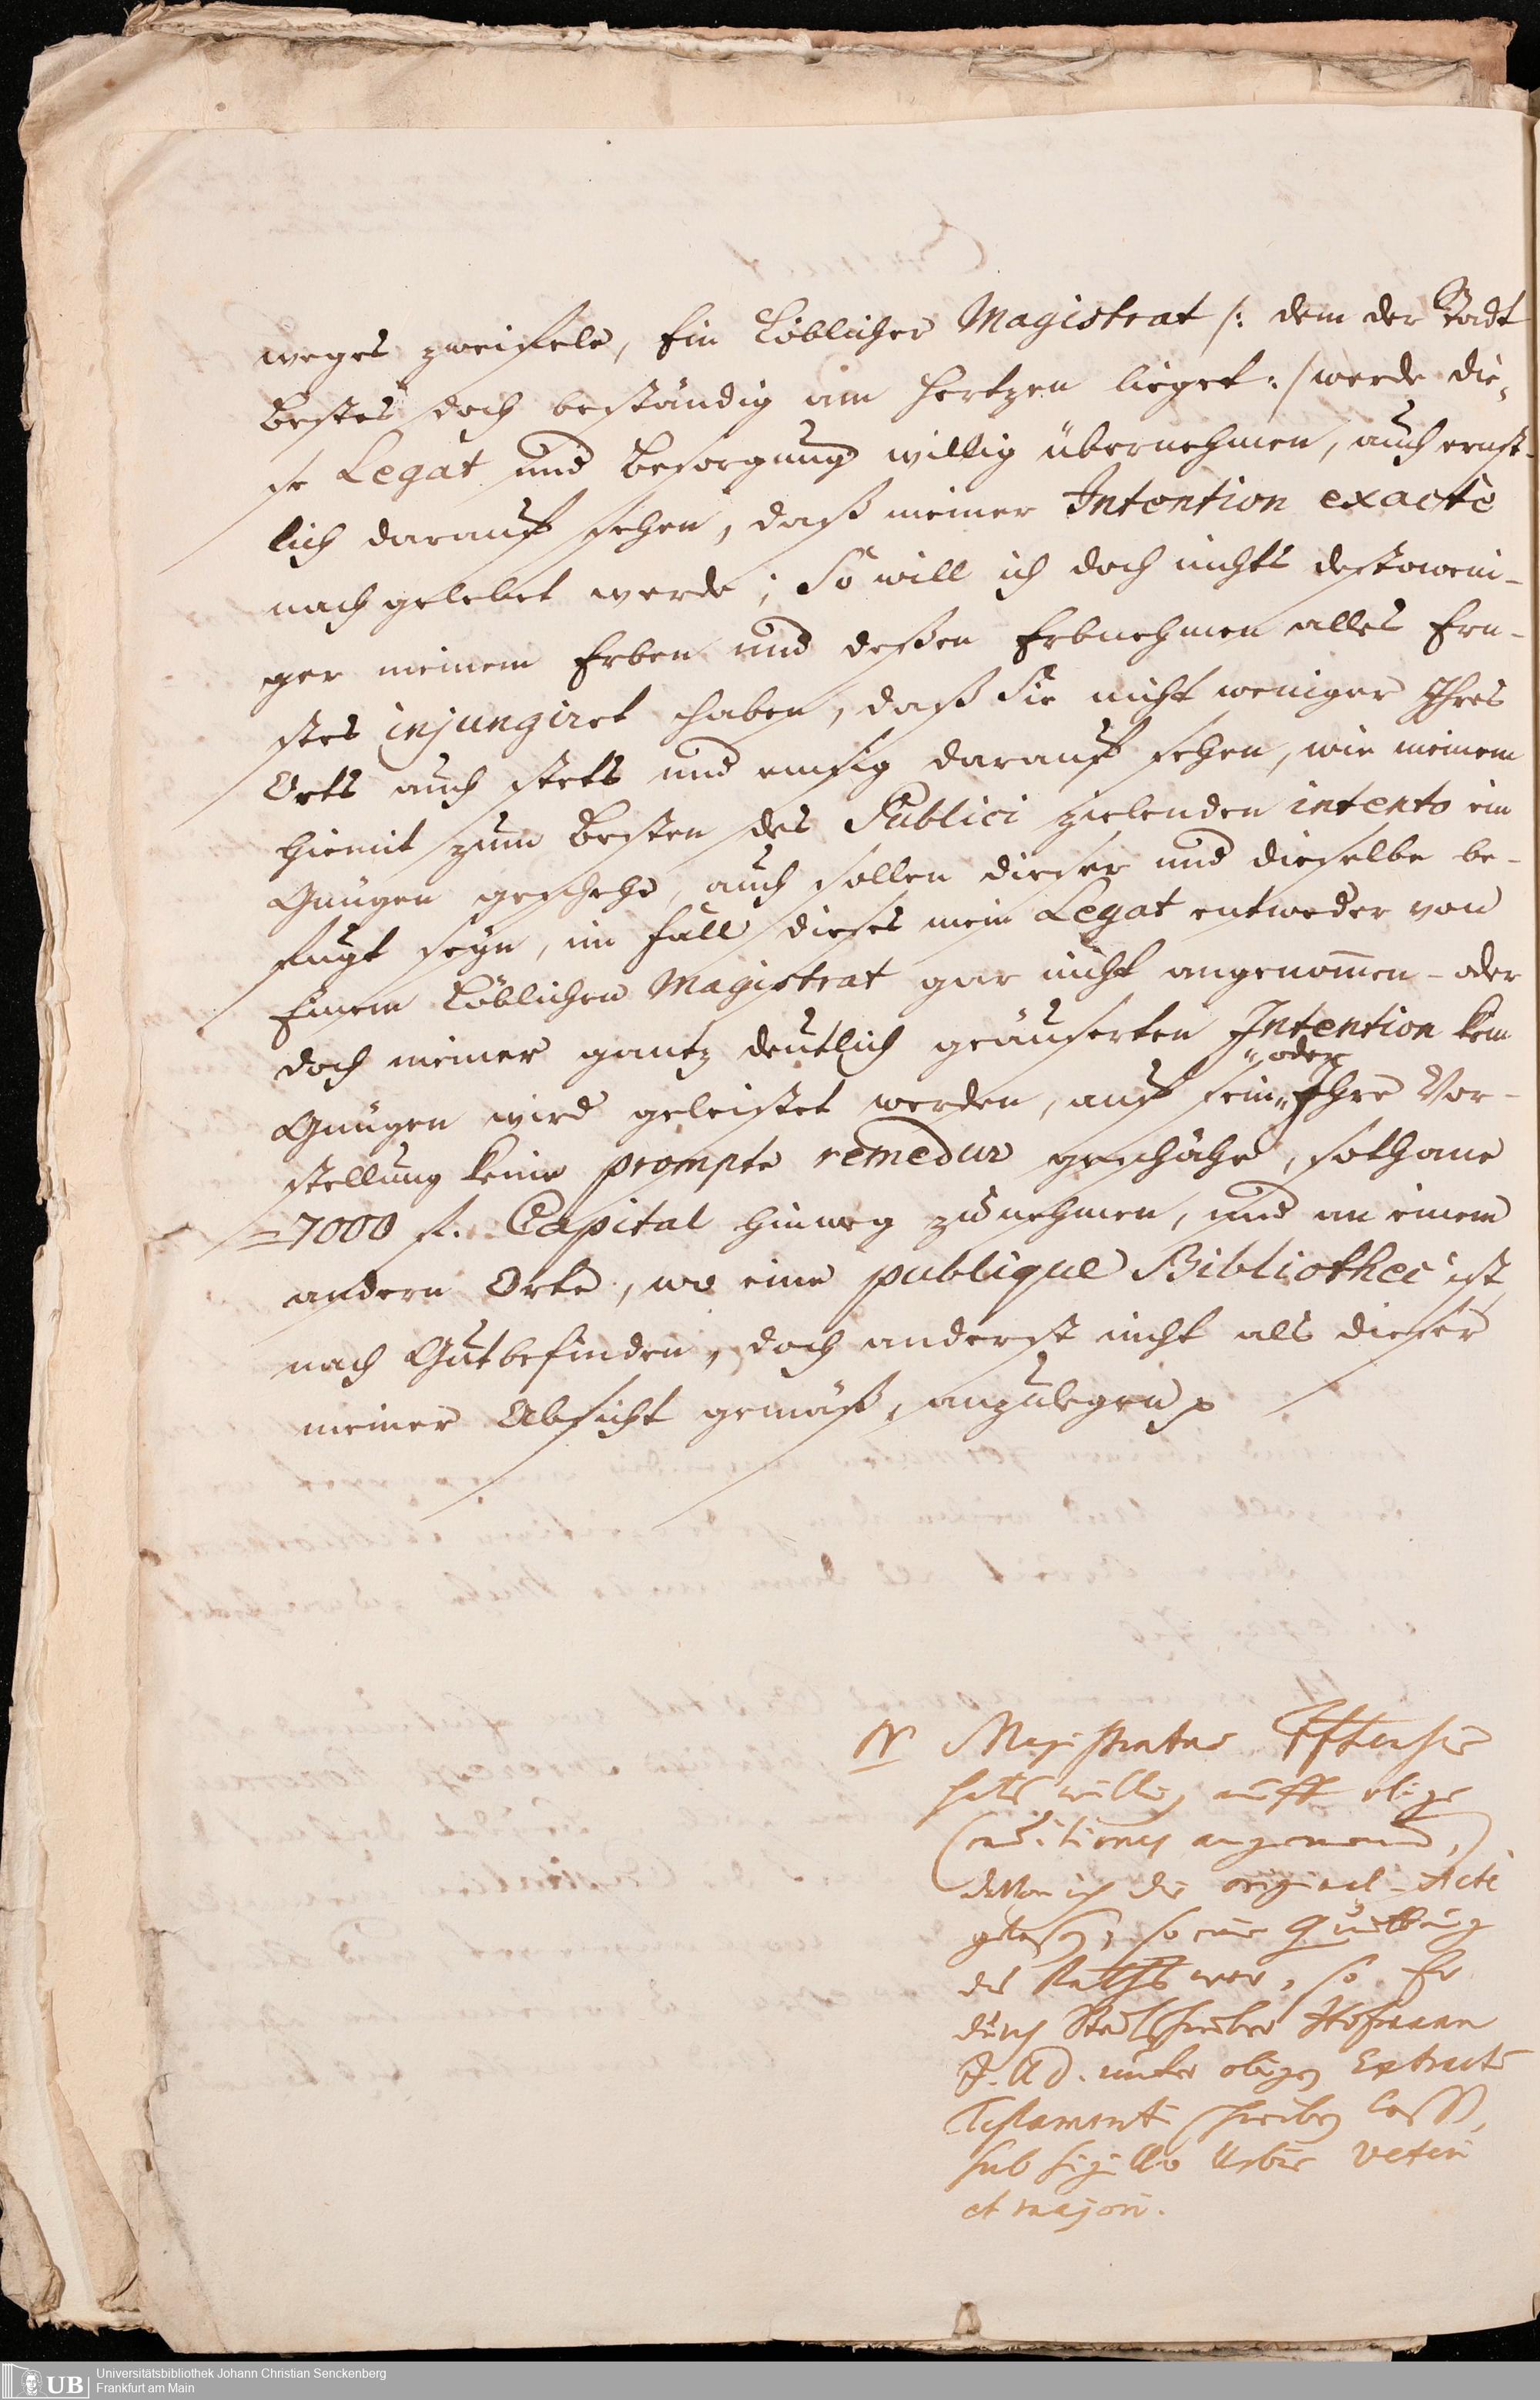 weges zweifele, Ein Löblicher Magistrat /: dem der Stadt
Bestes doch beständig am Hertzen lieget :/ werde die„
se Legat und Besorgung willig übernehmen, auch ernst-
lich darauf sehen, daß meiner Intention exactè
nachgelebet werde; So will ich doch nichts destoweni-
ger meinem Erben und deßen Erbnehmen alles Ern-
stes injungiret haben, daß Sie nicht weniger Ihres
Orts auch stets und emsig darauf sehen, wie meinem
hiemit zum Besten des Publici zielenden intento ein
Gnügen geschehe, auch sollen dieser und dieselbe be-
fugt seyn, im fall dieses mein Legat entweder von
Einem Löblichen Magistrat gar nicht angenom̄en - oder
doch meiner gantz deutlich geäuserten Intention kein
Gnügen wird geleistet werden, auf sein „oder„ Ihre Vor-
stellung keine prompte remedur geschähe, sothane
=7000 f. Capital hinweg zunehmen, und an einem
andern Orte, wo eine publique Bibliothec ist,
nach Gutbefinden, doch anderst nicht als dieser
meiner Absicht gemäß, anzulegen
Magistratus Fftensis
hats willig auff obige
Conditiones angenommen,
davon ich die original-Acte
gelesen, so eine Quittung
des Raths war, so Er
durch Stadtschreiber Hofmann
J. U. D. unter obigen Extractu
Testamenti schreiben lassen,
sub sigillo Urbis veteri
et majori.
UB
Universitätsbibliothek Johann Christian Senckenberg
Frankfurt am Main